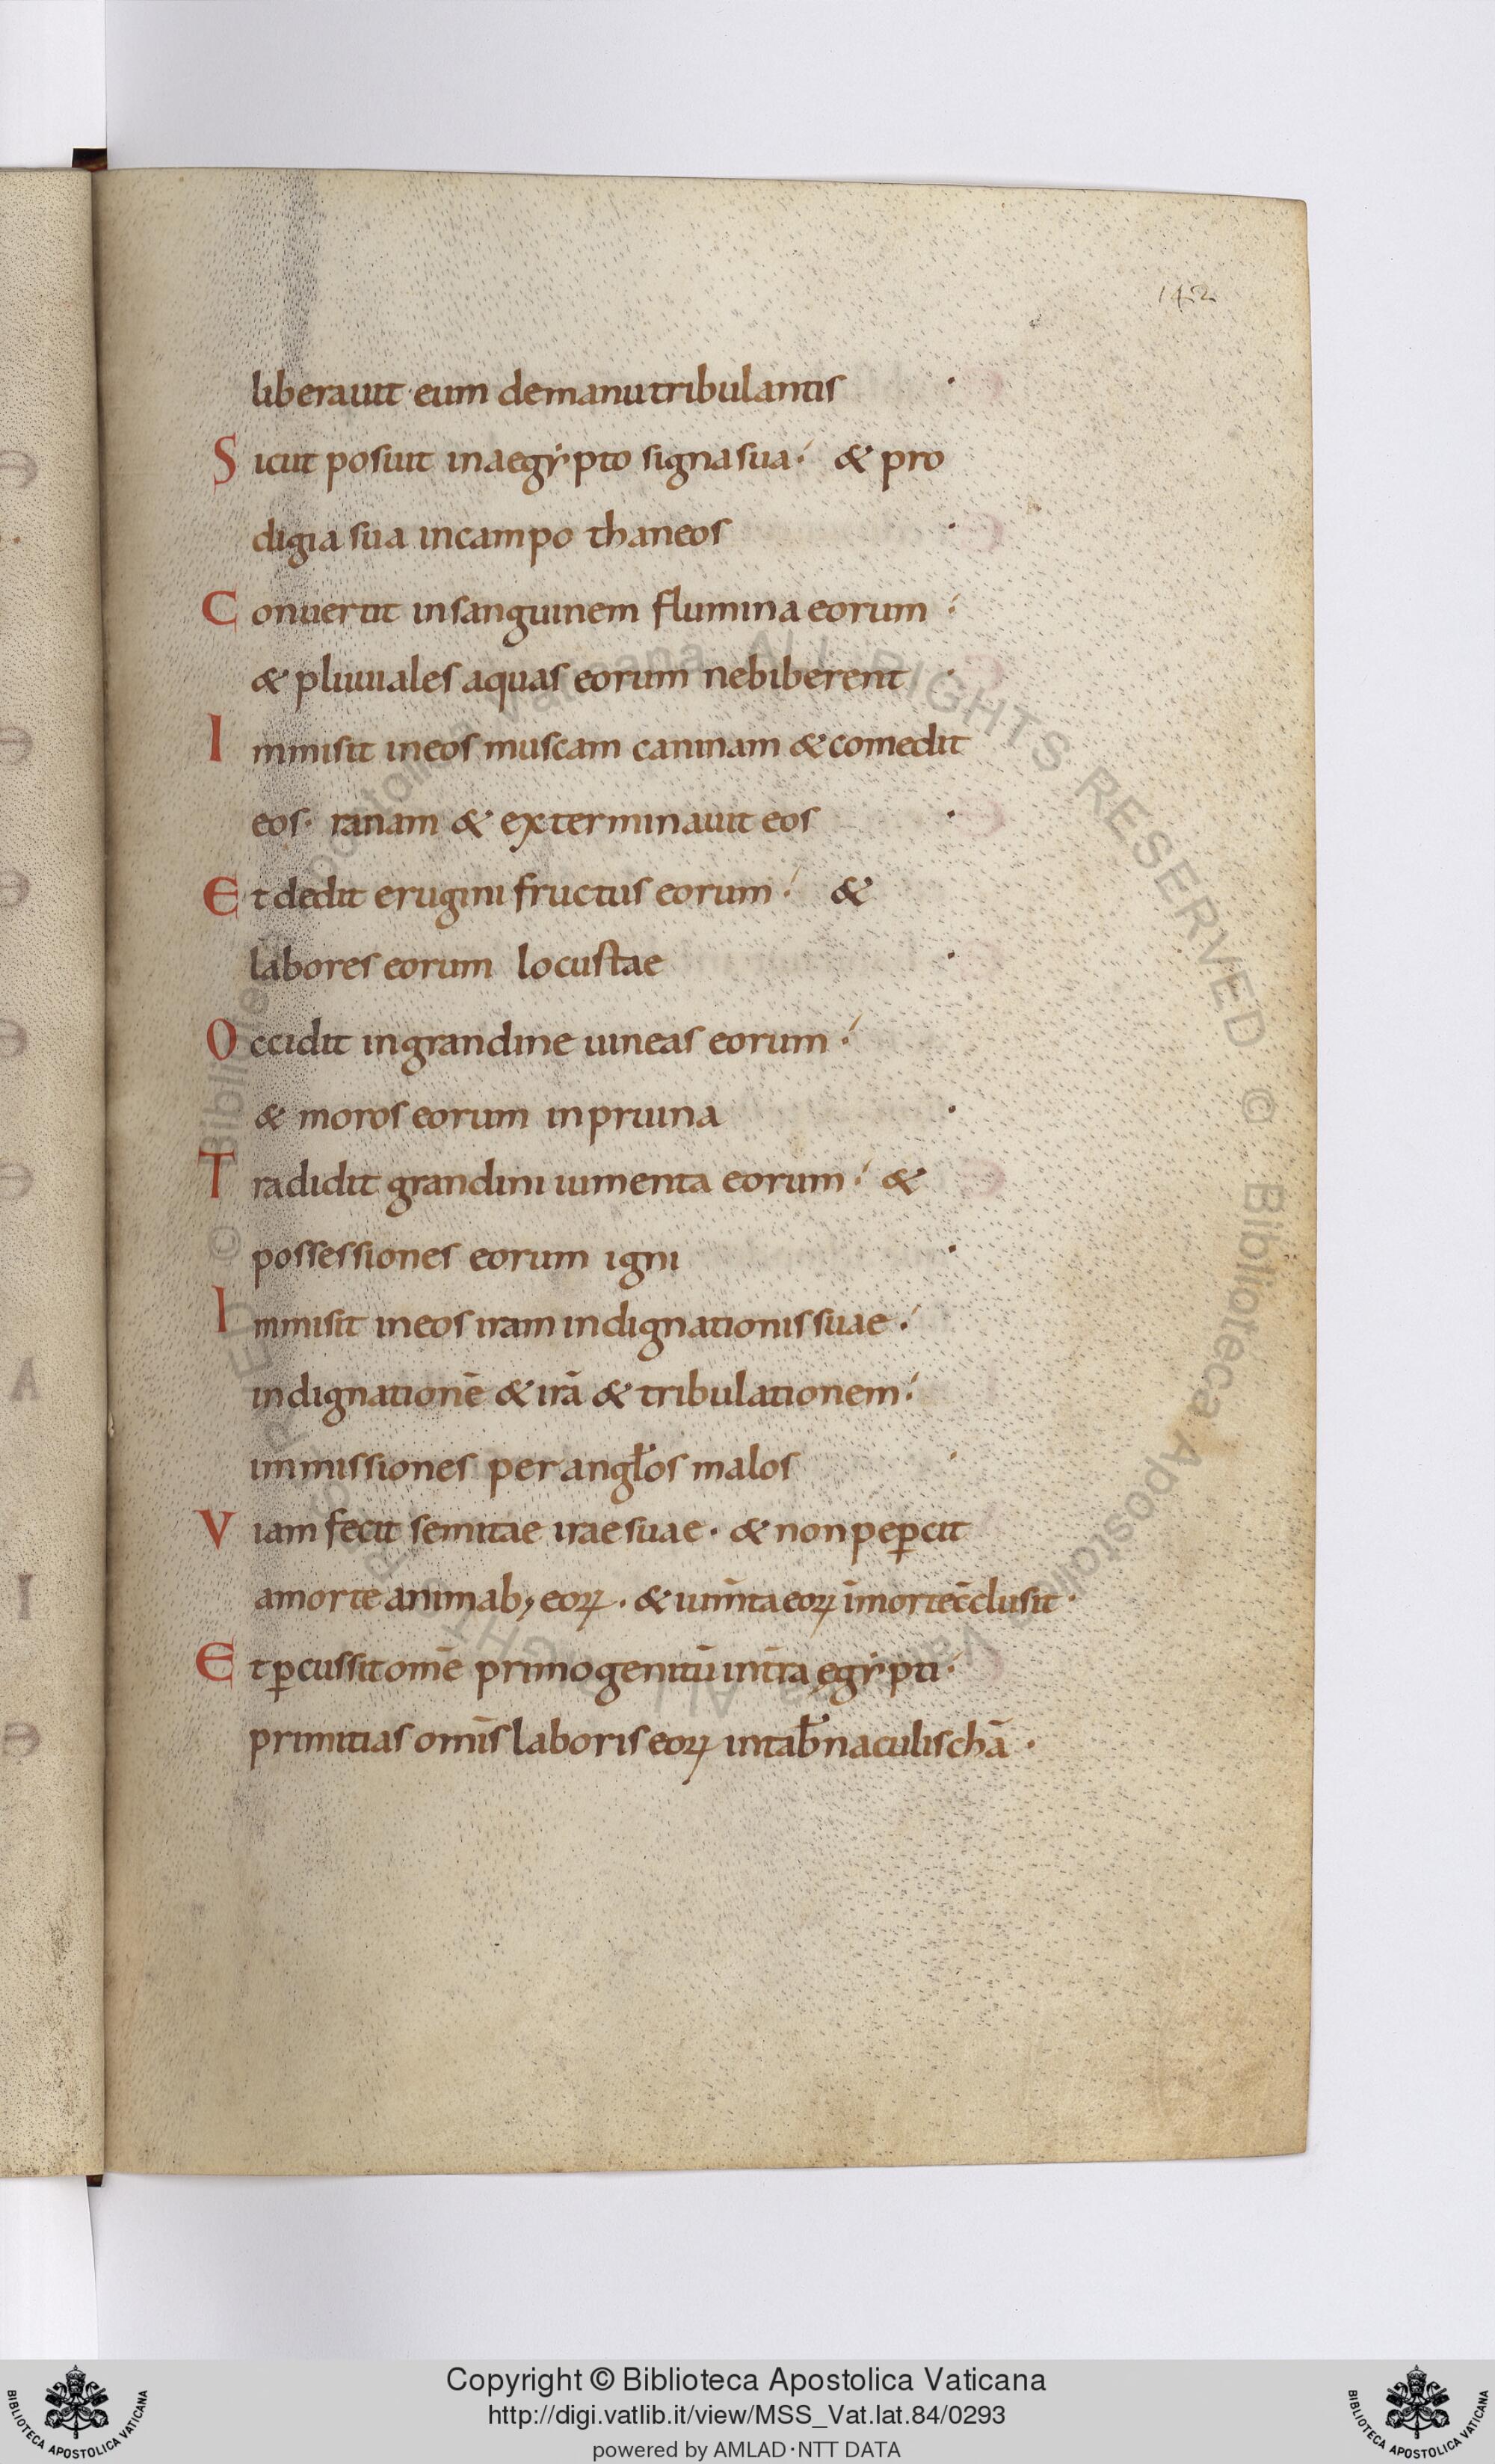 142
liberauit eum demanutribulantis ·
Sicut posuit inaegẏpto signasua·́ & pro
digia sua incampo thaneos ·
Conuertit insanguinem flumina eorum ·́
& pluuiales aquas eorum nebiberent ·
Immisit ineos muscam caninam & comedit
eos· ranam & exterminauit eos ·
Et dedit erugini fructus eorum·́ &
labores eorum locustae ·
Occidit ingrandine uineas eorum·́
& moros eorum inpruina ·
Tradidit grandini iumenta eorum·́ &
possessiones eorum igni ·
Immisit ineos iram indignationis suae·́
indignationē & irā & tribulationem·́
immissiones per angl̃os malos ·
Viam fecit semitae irae suae · & non peꝑcit
amorte animab; eoꝝ · & ium̄ta eoꝝ īmortec̄clusit ·
Et ꝑcussit om̄e primogenitū int̄ra ęgẏpti·́
primitias om̄is laboris eoꝝ intab̄naculis chā ·
Copyright © Biblioteca Apostolica Vaticana
http://digi.vatlib.it/view/MSS_Vat.lat.84/0293
powered by AMLAD·NTT DATA